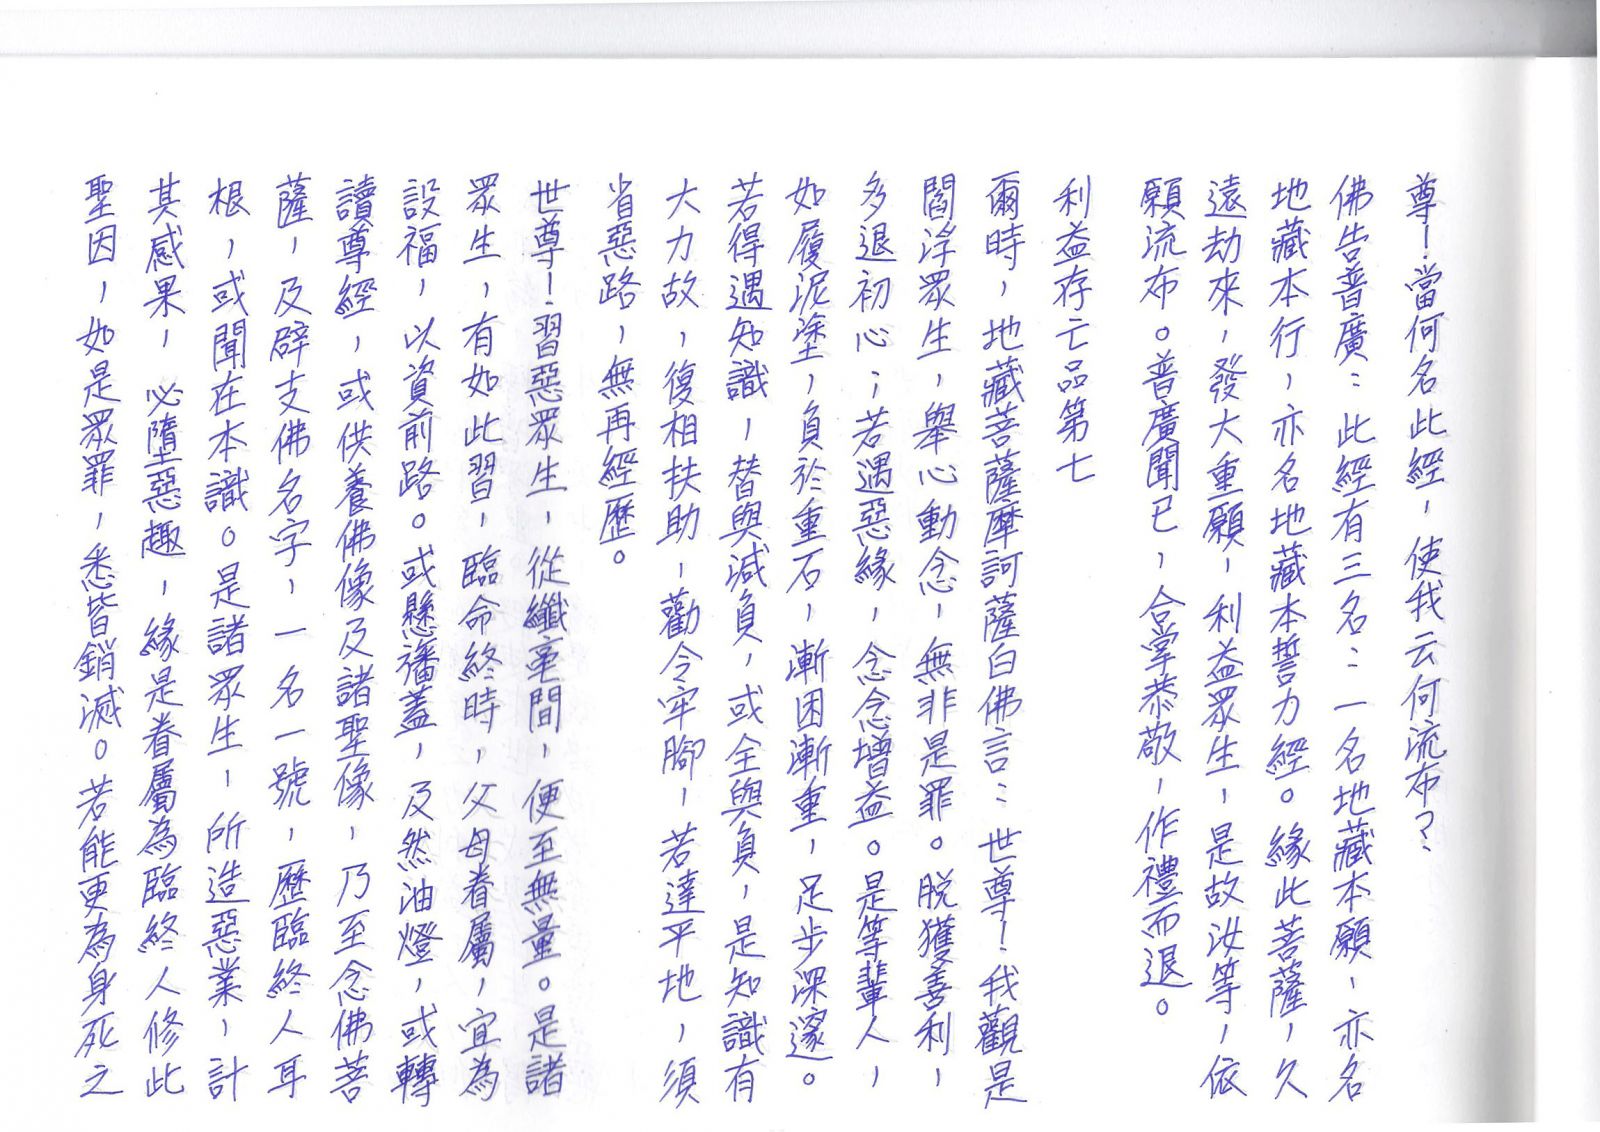 尊！當何名此經，使我云何流布？
佛告普廣：此經有三名：一名地藏本願，亦名
地藏本行，亦名地藏本誓力經。緣此菩薩，久
遠劫來，發大重願，利益眾生，是故汝等，依
願流布。普廣聞已，合掌恭敬，作禮而退。
利益存亡品第七
爾時，地藏菩薩摩訶薩白佛言：世尊！我觀是
閻浮眾生，舉心動念，無非是罪。脫獲善利，
多退初心；若遇惡緣，念念增益。是等輩人，
如履泥塗，負於重石，漸困漸重，足步深邃。
若得遇知識，替與減負，或全與負，是知識有
大力故，復相扶助，勸令牢腳，若達平地，須
省惡路，無再經歷。
世尊！習惡眾生，從纖毫間，便至無量。是諸
眾生，有如此習，臨命終時，父母眷屬，宜為
設福，以資前路。或懸旛蓋，及然油燈，或轉
讀尊經，或供養佛像及諸聖像，乃至念佛菩
薩，及辟支佛名字，一名一號，歷臨終人耳
根，或聞在本識。是諸眾生，所造惡業，計
其感果，必墮惡趣，緣是眷屬為臨終人修此
聖因，如是眾罪，悉皆銷滅。若能更為身死之